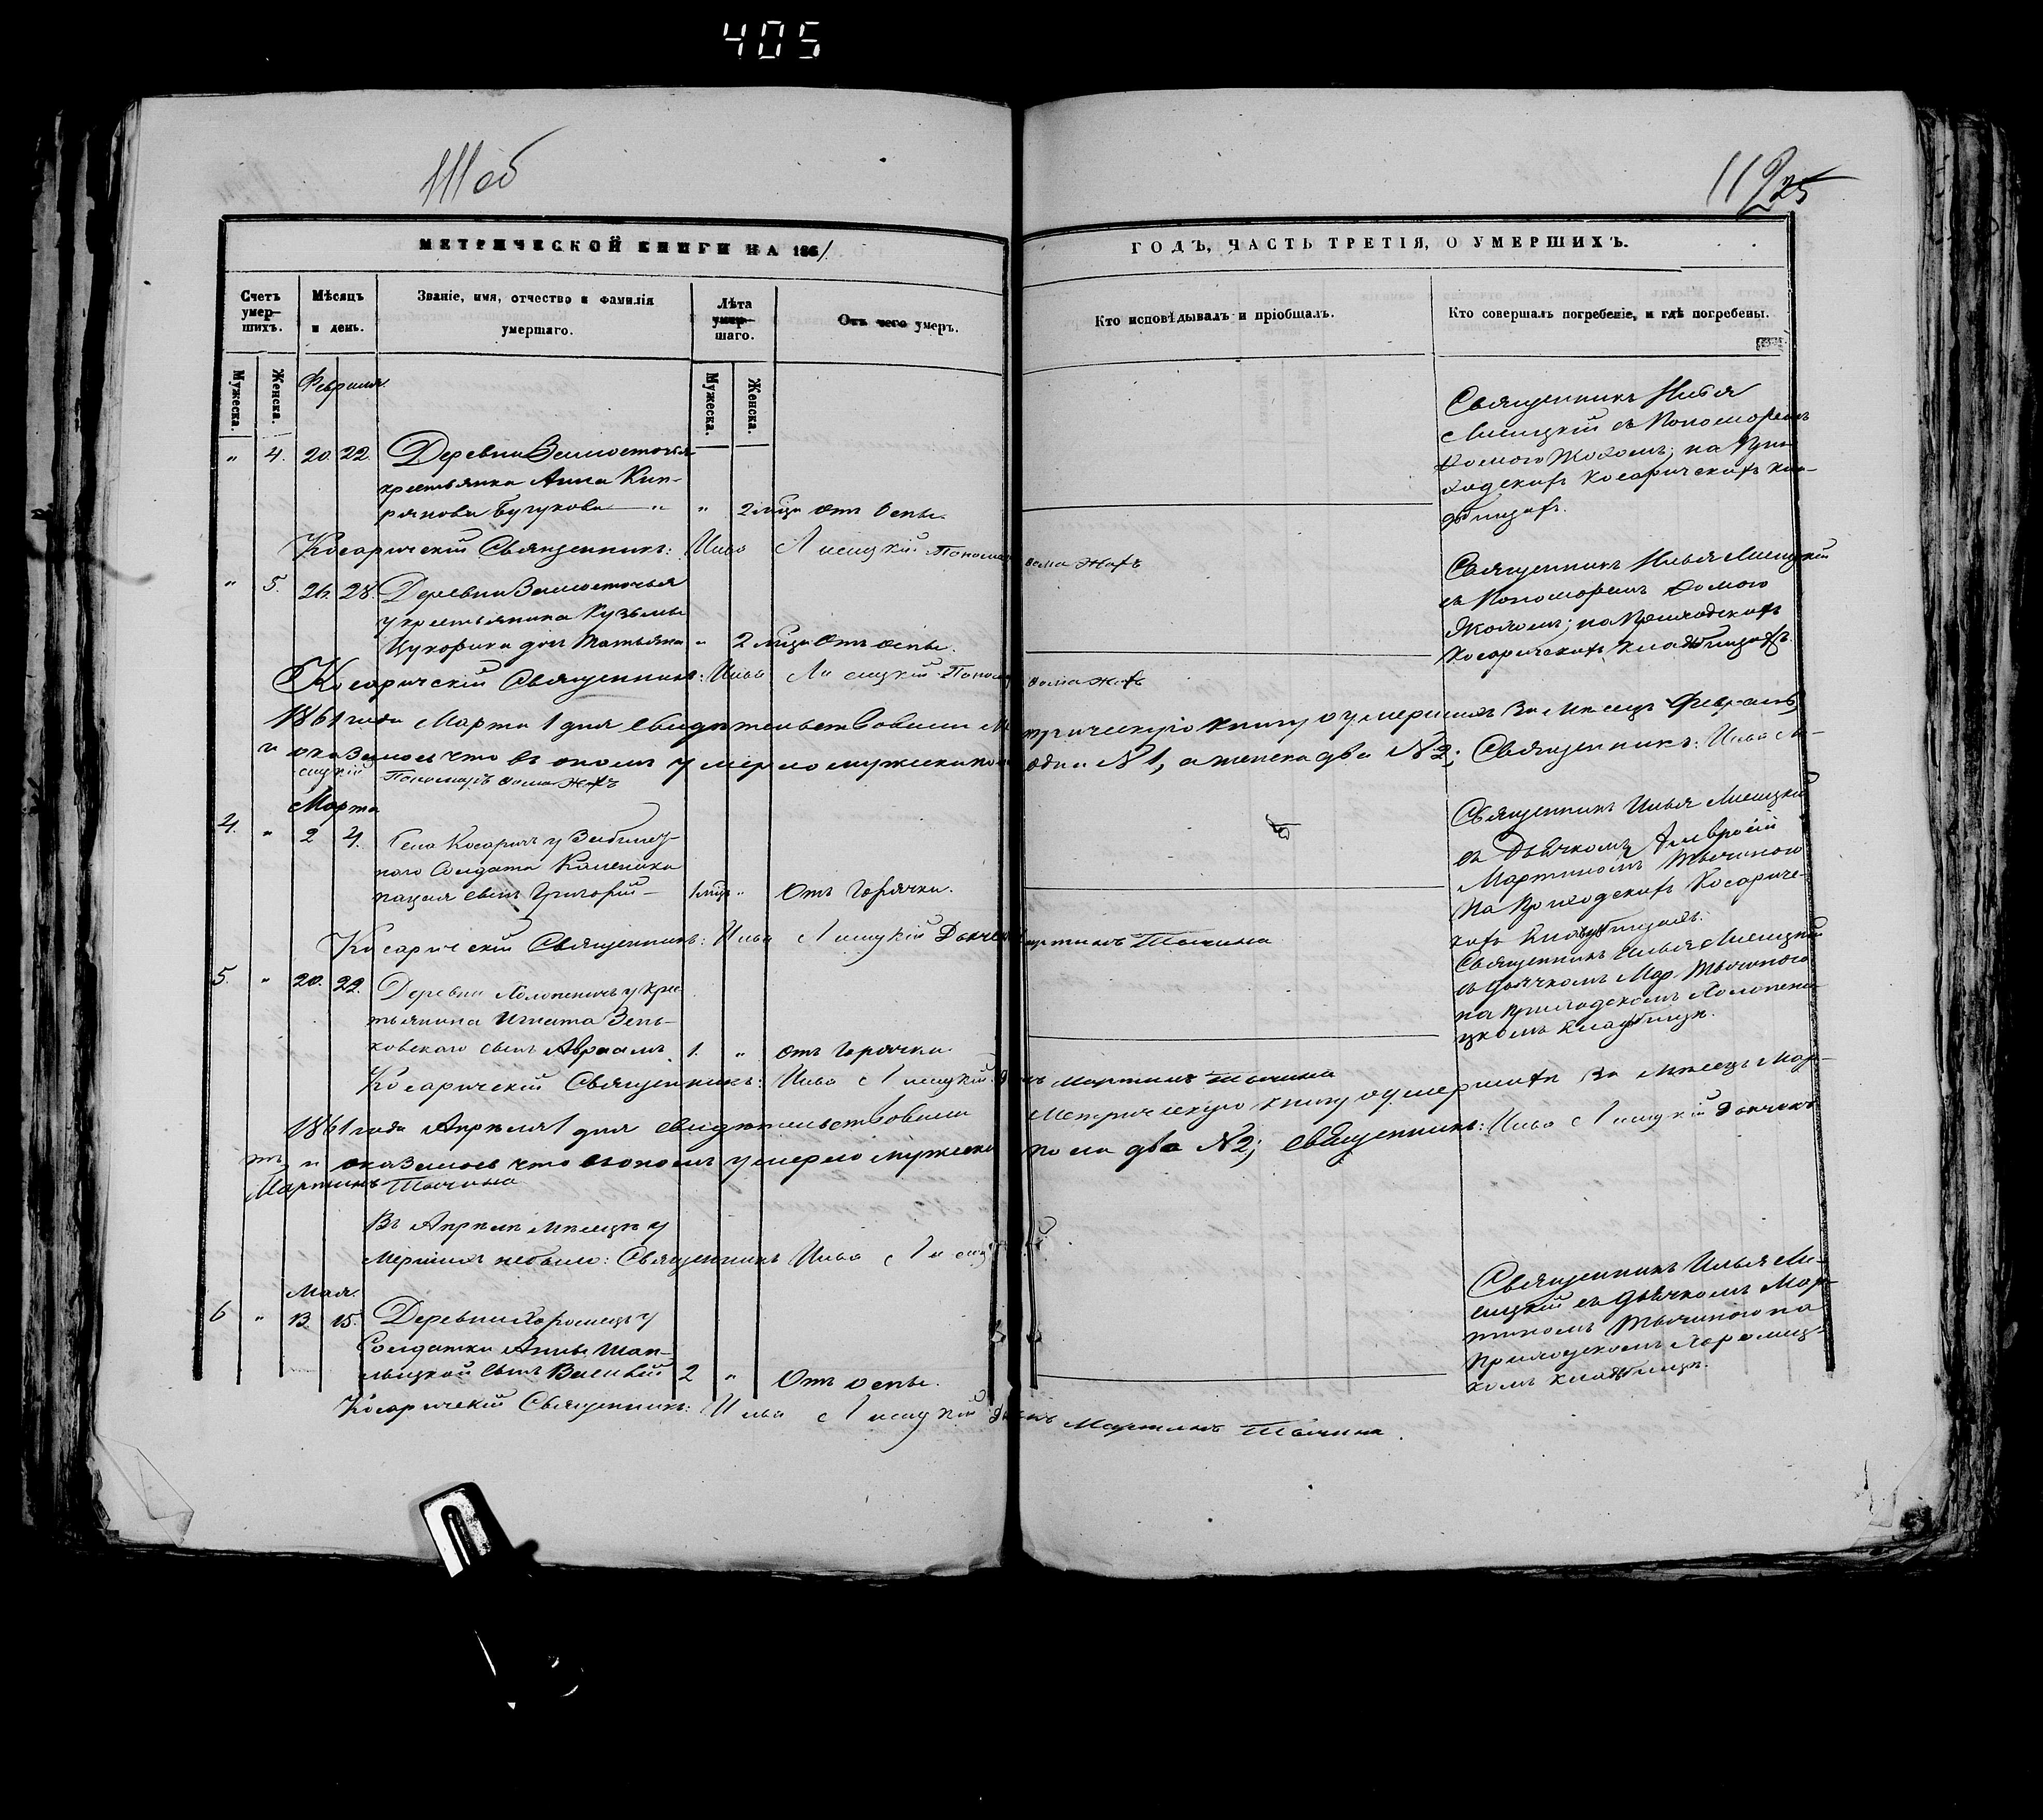 405
111 об
112
25
МЕТРИЧЕСКОЙ КНИГИ НА 1861
ГОДЪ, ЧАСТЬ ТРЕТІЯ, О УМЕРШИХЪ.
Счетъ умер-
шихъ.
Мѣсяцъ
и день.
Званіе, имя, отчество и фамилія
умершаго.
Лѣта
умер-
шаго.
Отъ чего умеръ.
Кто исповѣдывалъ и пріобщалъ.
Кто совершалъ погребеніе, и гдѣ погребены.
Мужеска.
Женска.
Мужеска.
Женска.
Февраля
" 4. 20. 22. Деревни Замосточья
крестьянка Анна Кип-
рянова " " 2 мѣца Отъ оспы.
Священникъ Илья
Лисицкій съ Пономаремъ
на При-
ходскихъ Косаричскихъ клад-
бищахъ.
Косаричскій Священникъ: Илья Лисицкій Пономарь
" 5. 26. 28. Деревни Замосточья
у крестьянина Кузьмы
дочь Татьяна " 2 мѣца Отъ оспы.
Священникъ Илья Лисицкій
съ Пономаремъ
на Приходскихъ
Косаричскихъ Кладбищахъ.
Косаричскій Священникъ: Илья Лисицкій
1861 года Марта 1 дня свидѣтельствовали Метрическую книгу о умершихъ за Мѣсяцъ Февраль,
и оказалось что въ ономъ умерло мужеска пола одинъ № 1, а женска два № 2; Священникъ: Илья Ли-
сицкій Пономарь
Марта
4. " 2 4. Села Косаричъ у
Солдата
сынъ Григорій 1 мѣц. " Отъ горячки.
Священникъ Илья Лисицкій
съ Дьячкомъ
Мартиномъ Тычиною
На Приходскихъ Косариче-
скихъ Кладбищахъ.
Косаричскій Священникъ: Илья Лисицкій Дьячекъ Мартинъ Тычина
5. " 20. 22. Деревни Холопеничъ у крес-
тьянина Игната Зень-
ковскаго сынъ Авраамъ 1. " отъ горячки
Священникъ Илья Лисицкій
съ дьячкомъ Мар. Тычиною
на приходскомъ Холопени-
цкомъ кладбищѣ.
Косаричскій Священникъ: Илья Лисицкій Мартинъ Тычина
1861 года Апрѣля 1 дня свидѣтельствовали Метрическую книгу о умершихъ за мѣсяцъ Мар-
тъ, и оказалось что въ ономъ умерло мужеска пола два № 2; Священникъ: Илья Лисицкій Дьячекъ
Мартинъ Тычина
Въ Апрѣлѣ мѣсяцѣ у
мершихъ небыло: Священникъ Илья Лисиц
Мая
6 " 13. 15. Деревни Хоромецъ у
Солдатки Анны
сынъ Василій 2 " Отъ оспы.
Священникъ Илья Ли-
сицкій съ дьячкомъ Мар-
тиномъ Тычиною на
приходскомъ Хоромиц-
комъ кладбищѣ.
Косаричскій Священникъ: Илья Лисицкій Мартинъ Тычина.